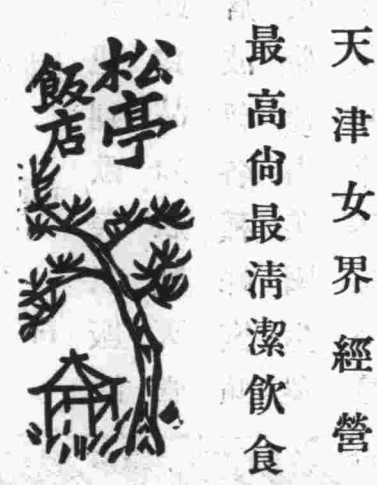 天津女界經營
最高尙最淸潔飮食
松亭
飯店